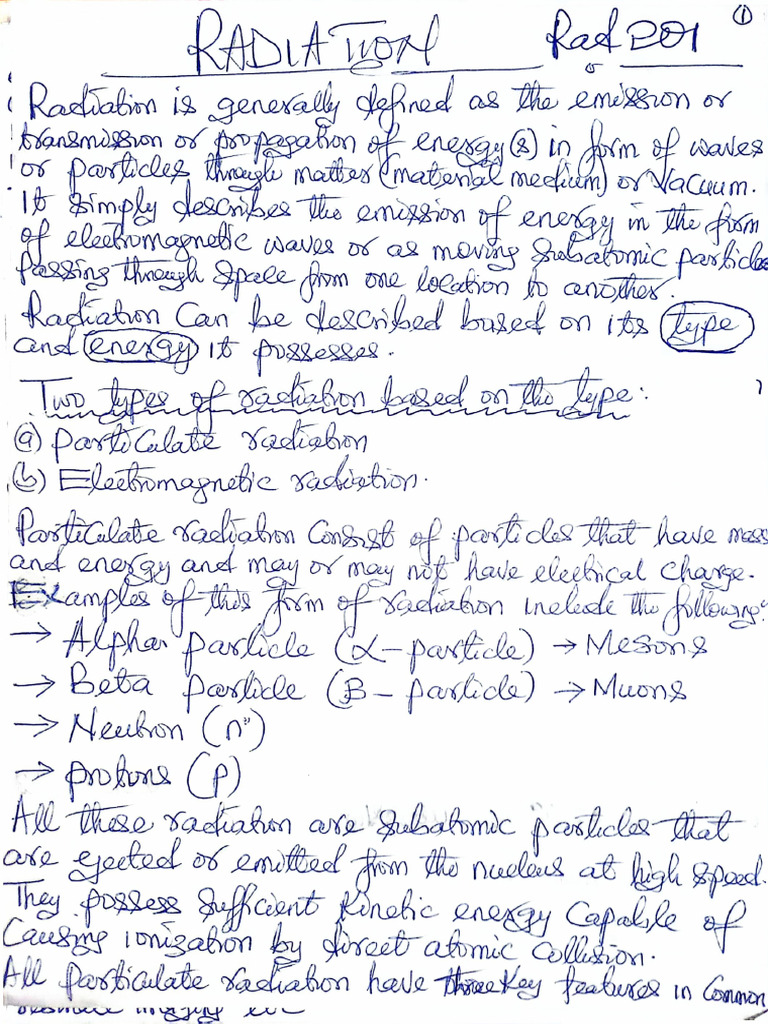 ①
RADIATION Rad 201
Radiation is generally defined as the emission or
transmission or propagation of energy(s) in form of waves
or particles through matter (material medium) or Vacuum.
It simply describes the emission of energy in the form
of electromagnetic waves or as moving Subatomic particles
passing through space from one location to another.
Radiation Can be described based on its type
and energy it possesses.
Two types of radiation based on the type:
(a) Particulate radiation
(b) Electromagnetic radiation.
Particulate radiation Consist of particles that have mass
and energy and may or may not have electrical charge.
Examples of this form of radiation include the following:
→ Alpha particle (α-particle) → Mesons
→ Beta particle (β- particle) → Muons
→ Neutron (n°)
→ protons (p)
All these radiation are Subatomic particles that
are ejected or emitted from the nucleus at high speed.
They possess Sufficient Kinetic energy Capable of
Causing ionization by direct atomic Collision.
All particulate radiation have three key features in Common